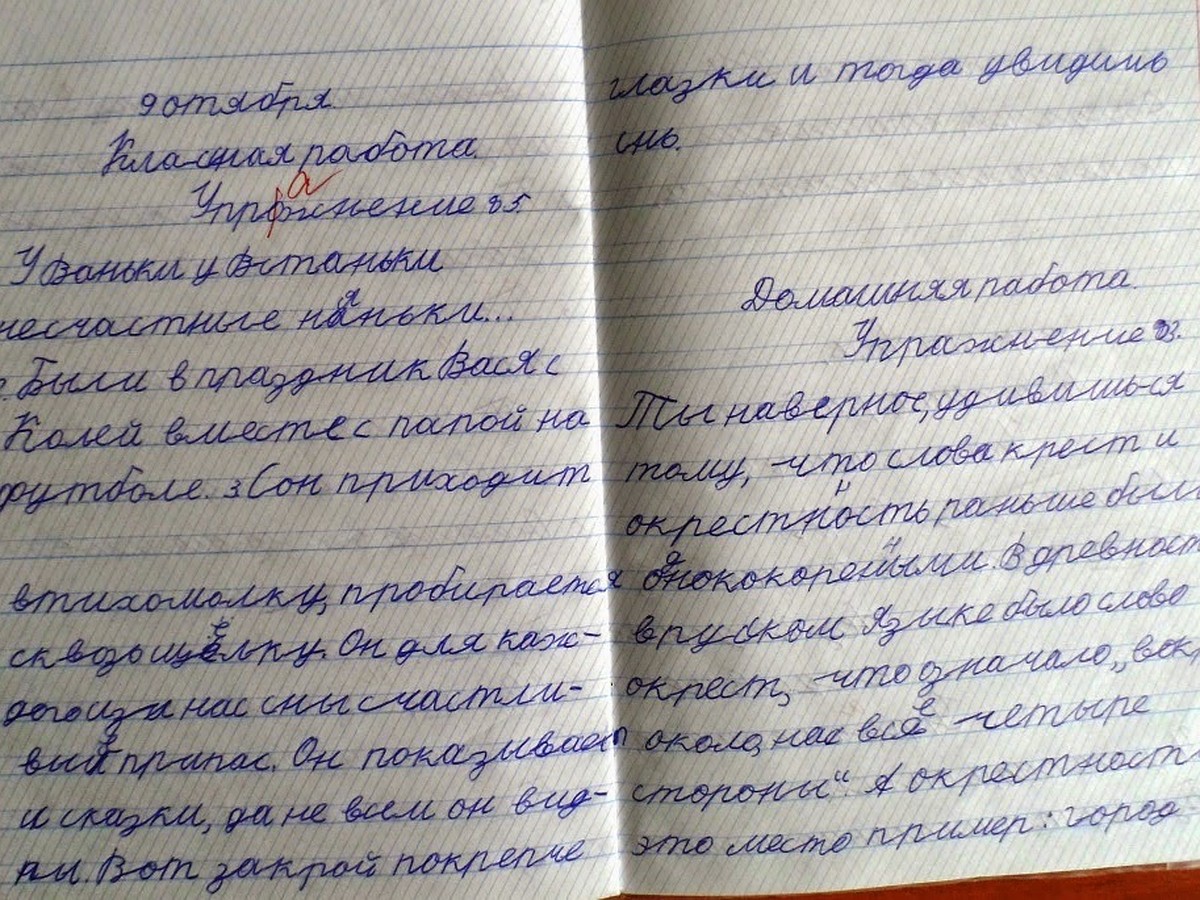 9 отября.
Класная работа.
Упражнение 85.
У Ваньки у Встаньки
несчастные няньки...
Были в праздник Вася с
Колей вместе с папой на
футболе. 3 Сон приходит
втихомолку, пробирается
сквозь щелку. Он для каж-
дого из нас сны счастли-
вый припас. Он показывает
и сказки, да не всем он вид-
ны. Вот закрой покрепче
глазки и тогда увидишь
сны.
Домашняя работа.
Упражнение 83.
Ты наверное, удивишься
тому, что слова крест и
окрестность раньше были
однококоренными. В древност
в руском языке было слово
окрест, что означало, „вокр
около, нас все четыре
стороны“. А окрестност
это место пример: город